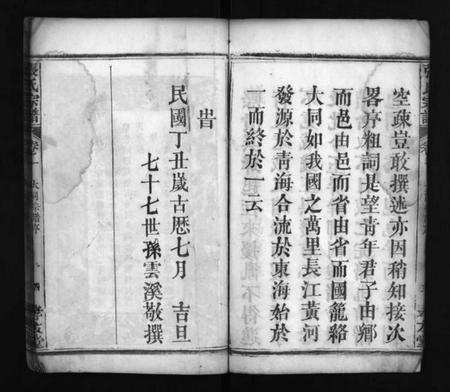 空疎豈敢撰述亦因稍知接次
畧序粗詞是望青年君子由鄉
而邑由邑而省由省而國籠絡
大同如我國之萬里長江黃河
發源於青海合流於東海始於
一而終於一云
旹
民國丁丑歲古厯七月　吉旦
七十七世孫雲溪敬撰
張氏宗譜